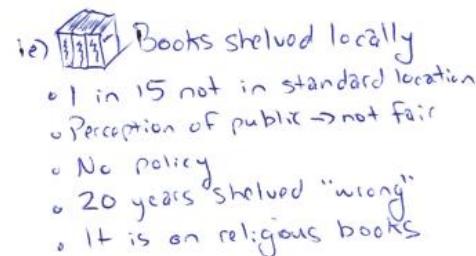 ie) Books shelved locally
• 1 in 15 not in standard location
• Perception of public → not fair
• No policy
• 20 years shelved "wrong"
• It is on religious books